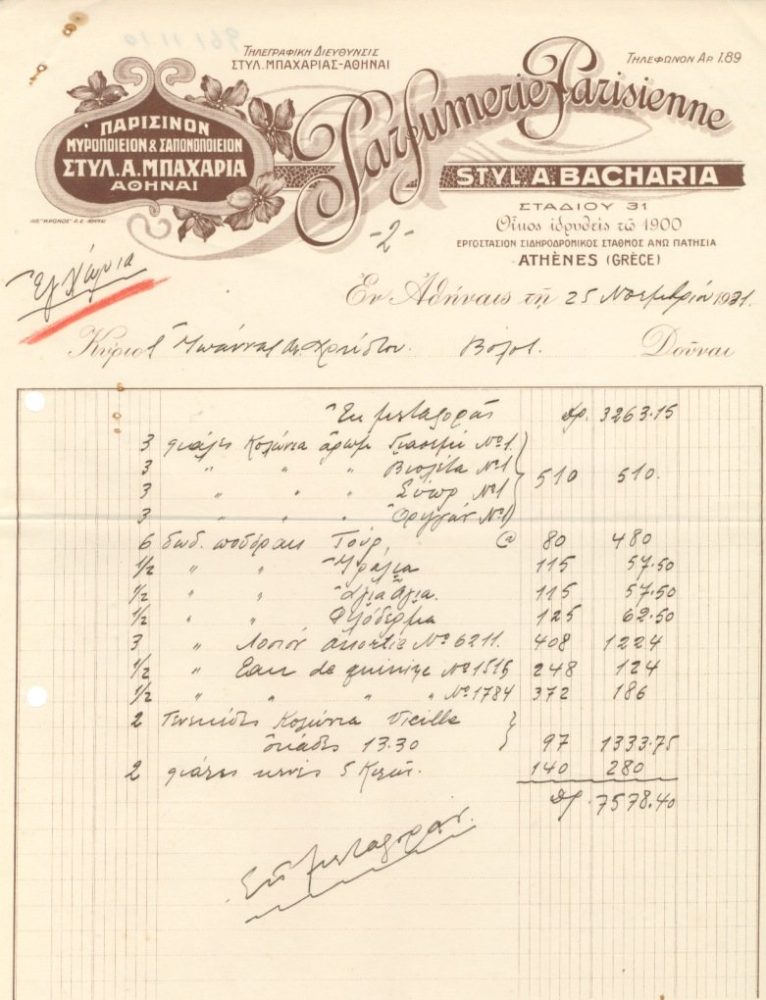 ΤΗΛΕΓΡΑΦΙΚΗ ΔΙΕΥΘΥΝΣΙΣ
ΣΤΥΛ. ΜΠΑΧΑΡΙΑΣ-ΑΘΗΝΑΙ
ΤΗΛΕΦΩΝΟΝ ΑΡ. 1.89
ΠΑΡΙΣΙΝΟΝ
ΜΥΡΟΠΟΙΕΙΟΝ & ΣΑΠΩΝΟΠΟΙΕΙΟΝ
ΣΤΥΛ. Α. ΜΠΑΧΑΡΙΑ
ΑΘΗΝΑΙ
Parfumerie Parisienne
STYL. A. BACHARIA
ΣΤΑΔΙΟΥ 31
Οἶκος ἱδρυθεὶς τῷ 1900
ΕΡΓΟΣΤΑΣΙΟΝ ΣΙΔΗΡΟΔΡΟΜΙΚΟΣ ΣΤΑΘΜΟΣ ΑΝΩ ΠΑΤΗΣΙΑ
ATHÈNES (GRÈCE)
-2-
Ἐν Ἀθήναις τῇ 25 Νοεμβρίου 1931.
Κύριος Χρήστου. Βόλος. Δοῦναι
Ἐκ μεταφορᾶς Δρ. 3263.15
3 φιάλες Κολώνια ἄρωμ Γιασεμί Nο1.
3 " " " Βιολέτα Nο1 510 510.
3 " " " Nο1
3 " " " Ὀριγκάν Nο1
6 δωδ. πούδρας Τούρ, @ 80 480
1/2 " " 115 57.50
1/2 " " 115 57.50
1/2 " " Φλόδερμα 125 62.50
3 " Λοσιόν Nο 6211. 408 1224
1/2 " Eau de quinine Nο1515 248 124
1/2 " " " " Nο1784 372 186
2 Τενεκέδες Κολώνια Vieille
ὀκάδες 13.30 97 1333.75
2 φιάλες κενές 5 140 280
Δρ. 7578.40
Εἰς μεταφοράν.